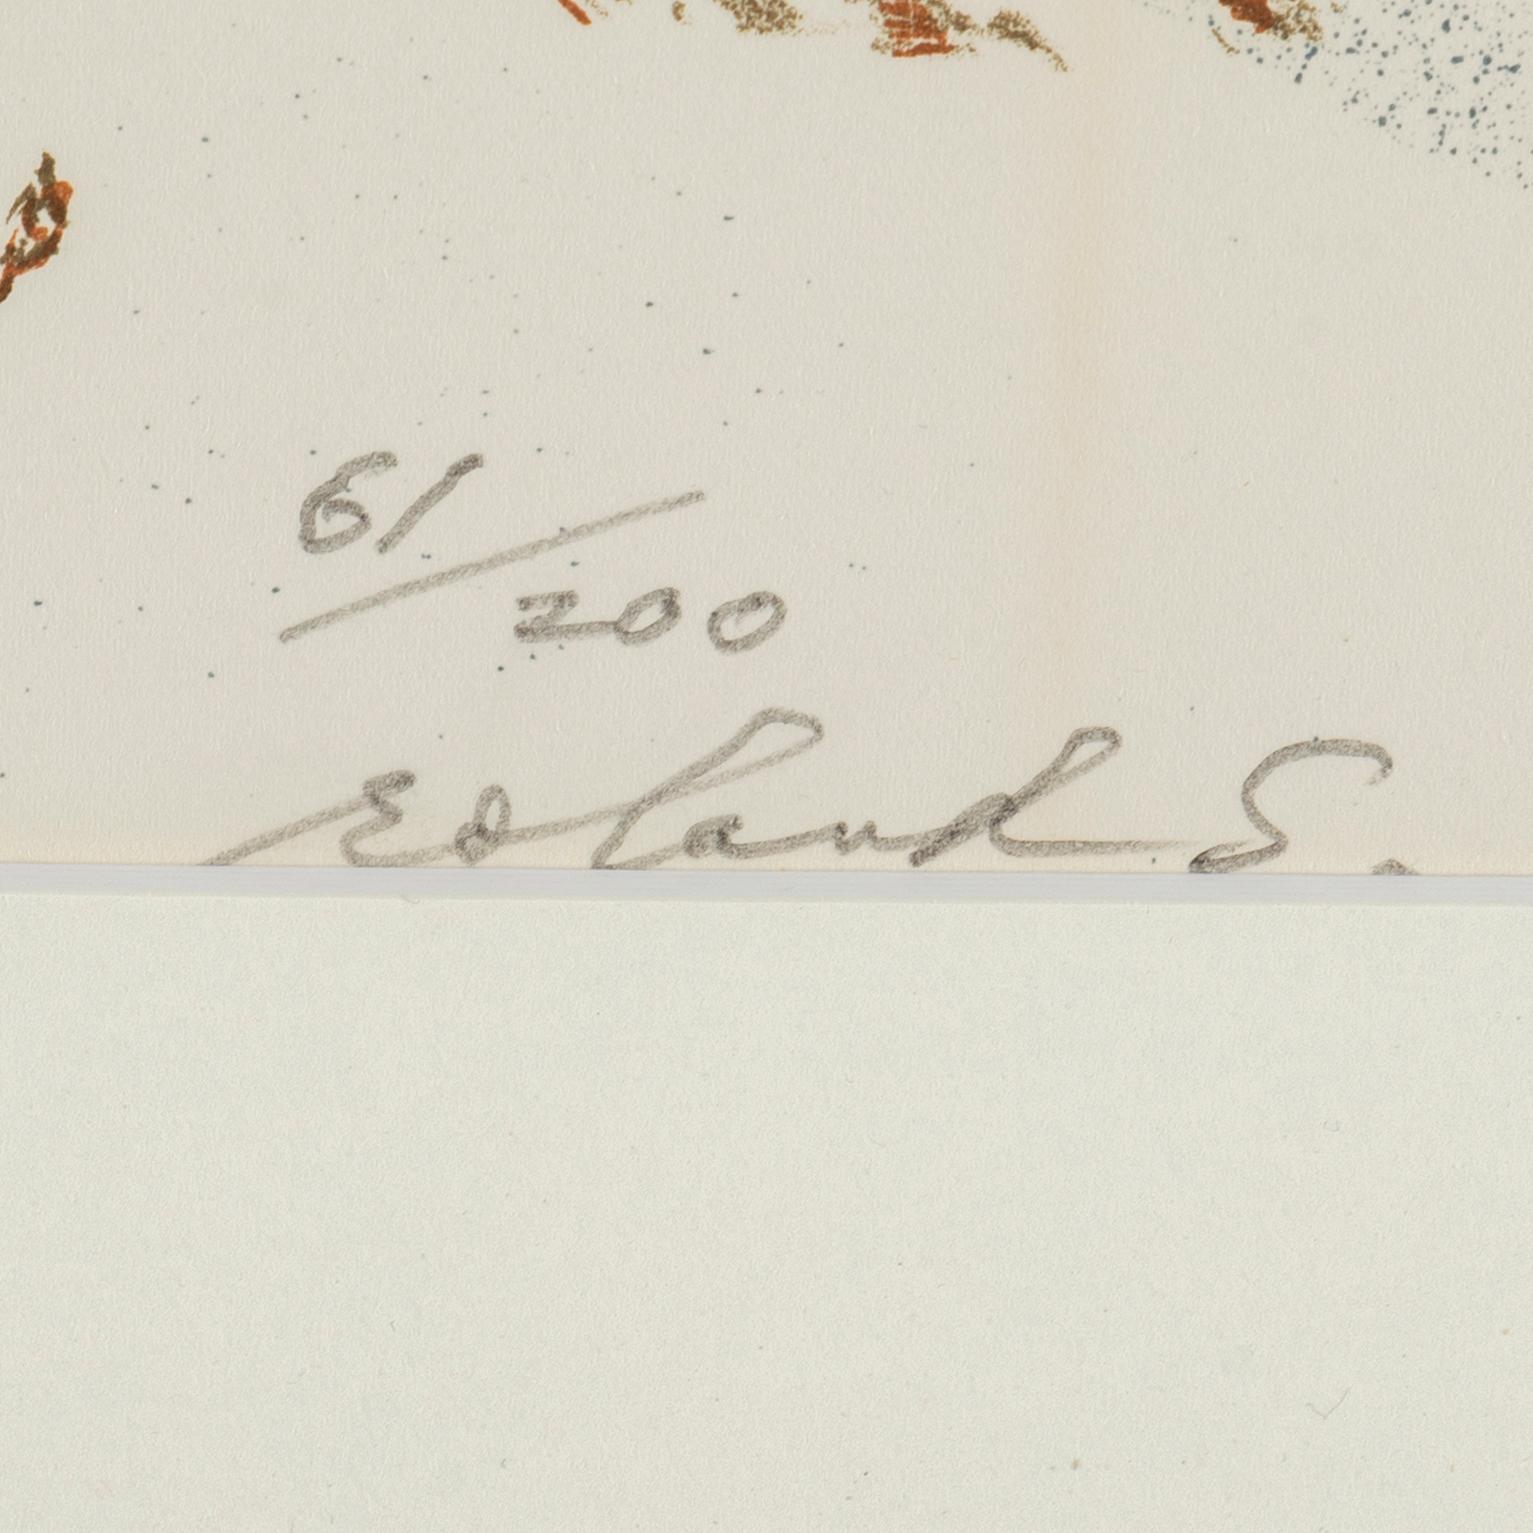 61/200
Roland S.